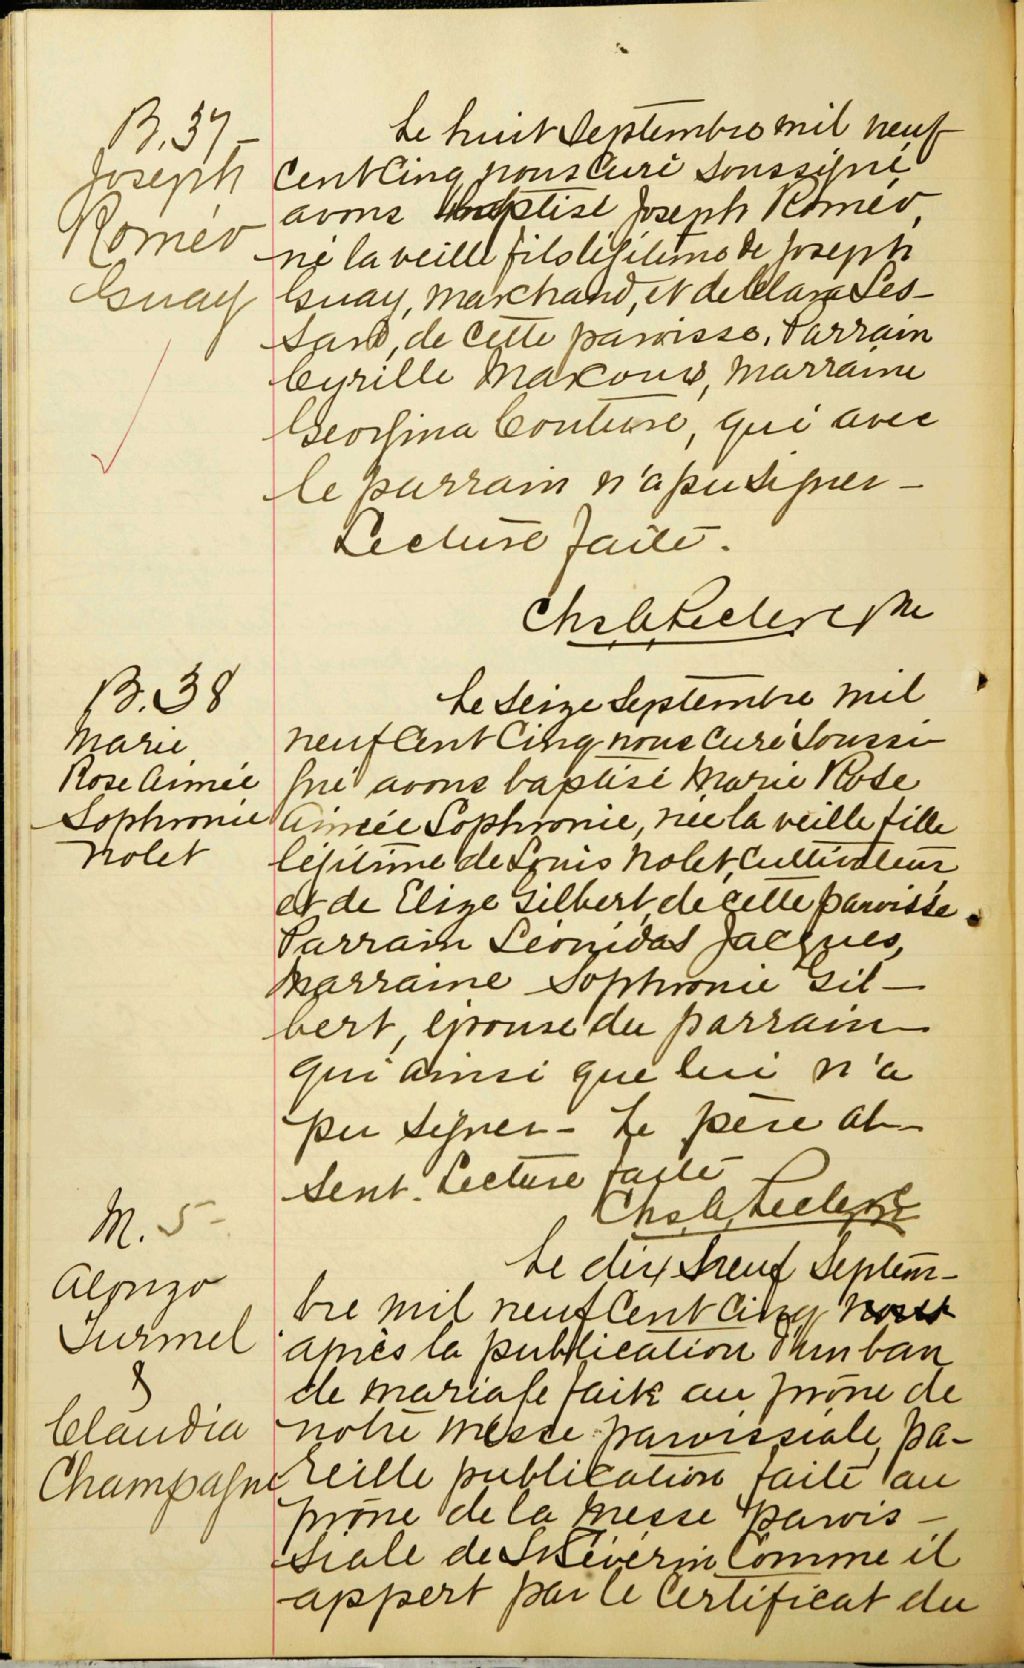 B. 37
Joseph
Roméo
Guay
Le huit Septembre mil neuf
cent cinq nous curé soussigné
avons baptisé Joseph Roméo,
né la veille fils légitime de Joseph
Guay, marchand, et de Clara Les-
sard, de cette paroisse. Parrain
Cyrille Marcoux, marraine
Georgina Couture, qui avec
le parrain n'a pu signer -
Lecture faite.
Chs. A. Leclerc Ptre
B. 38
Marie
Rose Aimée
Sophronie
Nolet
Le Seize Septembre mil
neuf cent cinq nous curé soussi-
gné avons baptisé Marie Rose
Aimée Sophronie, née la veille fille
légitime de Louis Nolet, cultivateur,
et de Elize Gilbert, de cette paroisse.
Parrain Léonidas Jacques,
Marraine Sophronie Gil-
bert, épouse du parrain
qui ainsi que lui n'a
pu signer - Le père ab-
sent. Lecture faite
Leclerc
M. 5 -
Alonzo
Turmel
&
Claudia
Champagne
Le dix neuf Septem-
bre mil neuf cent cinq
après la publication d'un ban
de mariage faite au prône de
notre messe paroissiale, pa-
reille publication faite au
prône de la messe parois-
siale de St Séverin Comme il
appert par le certificat du